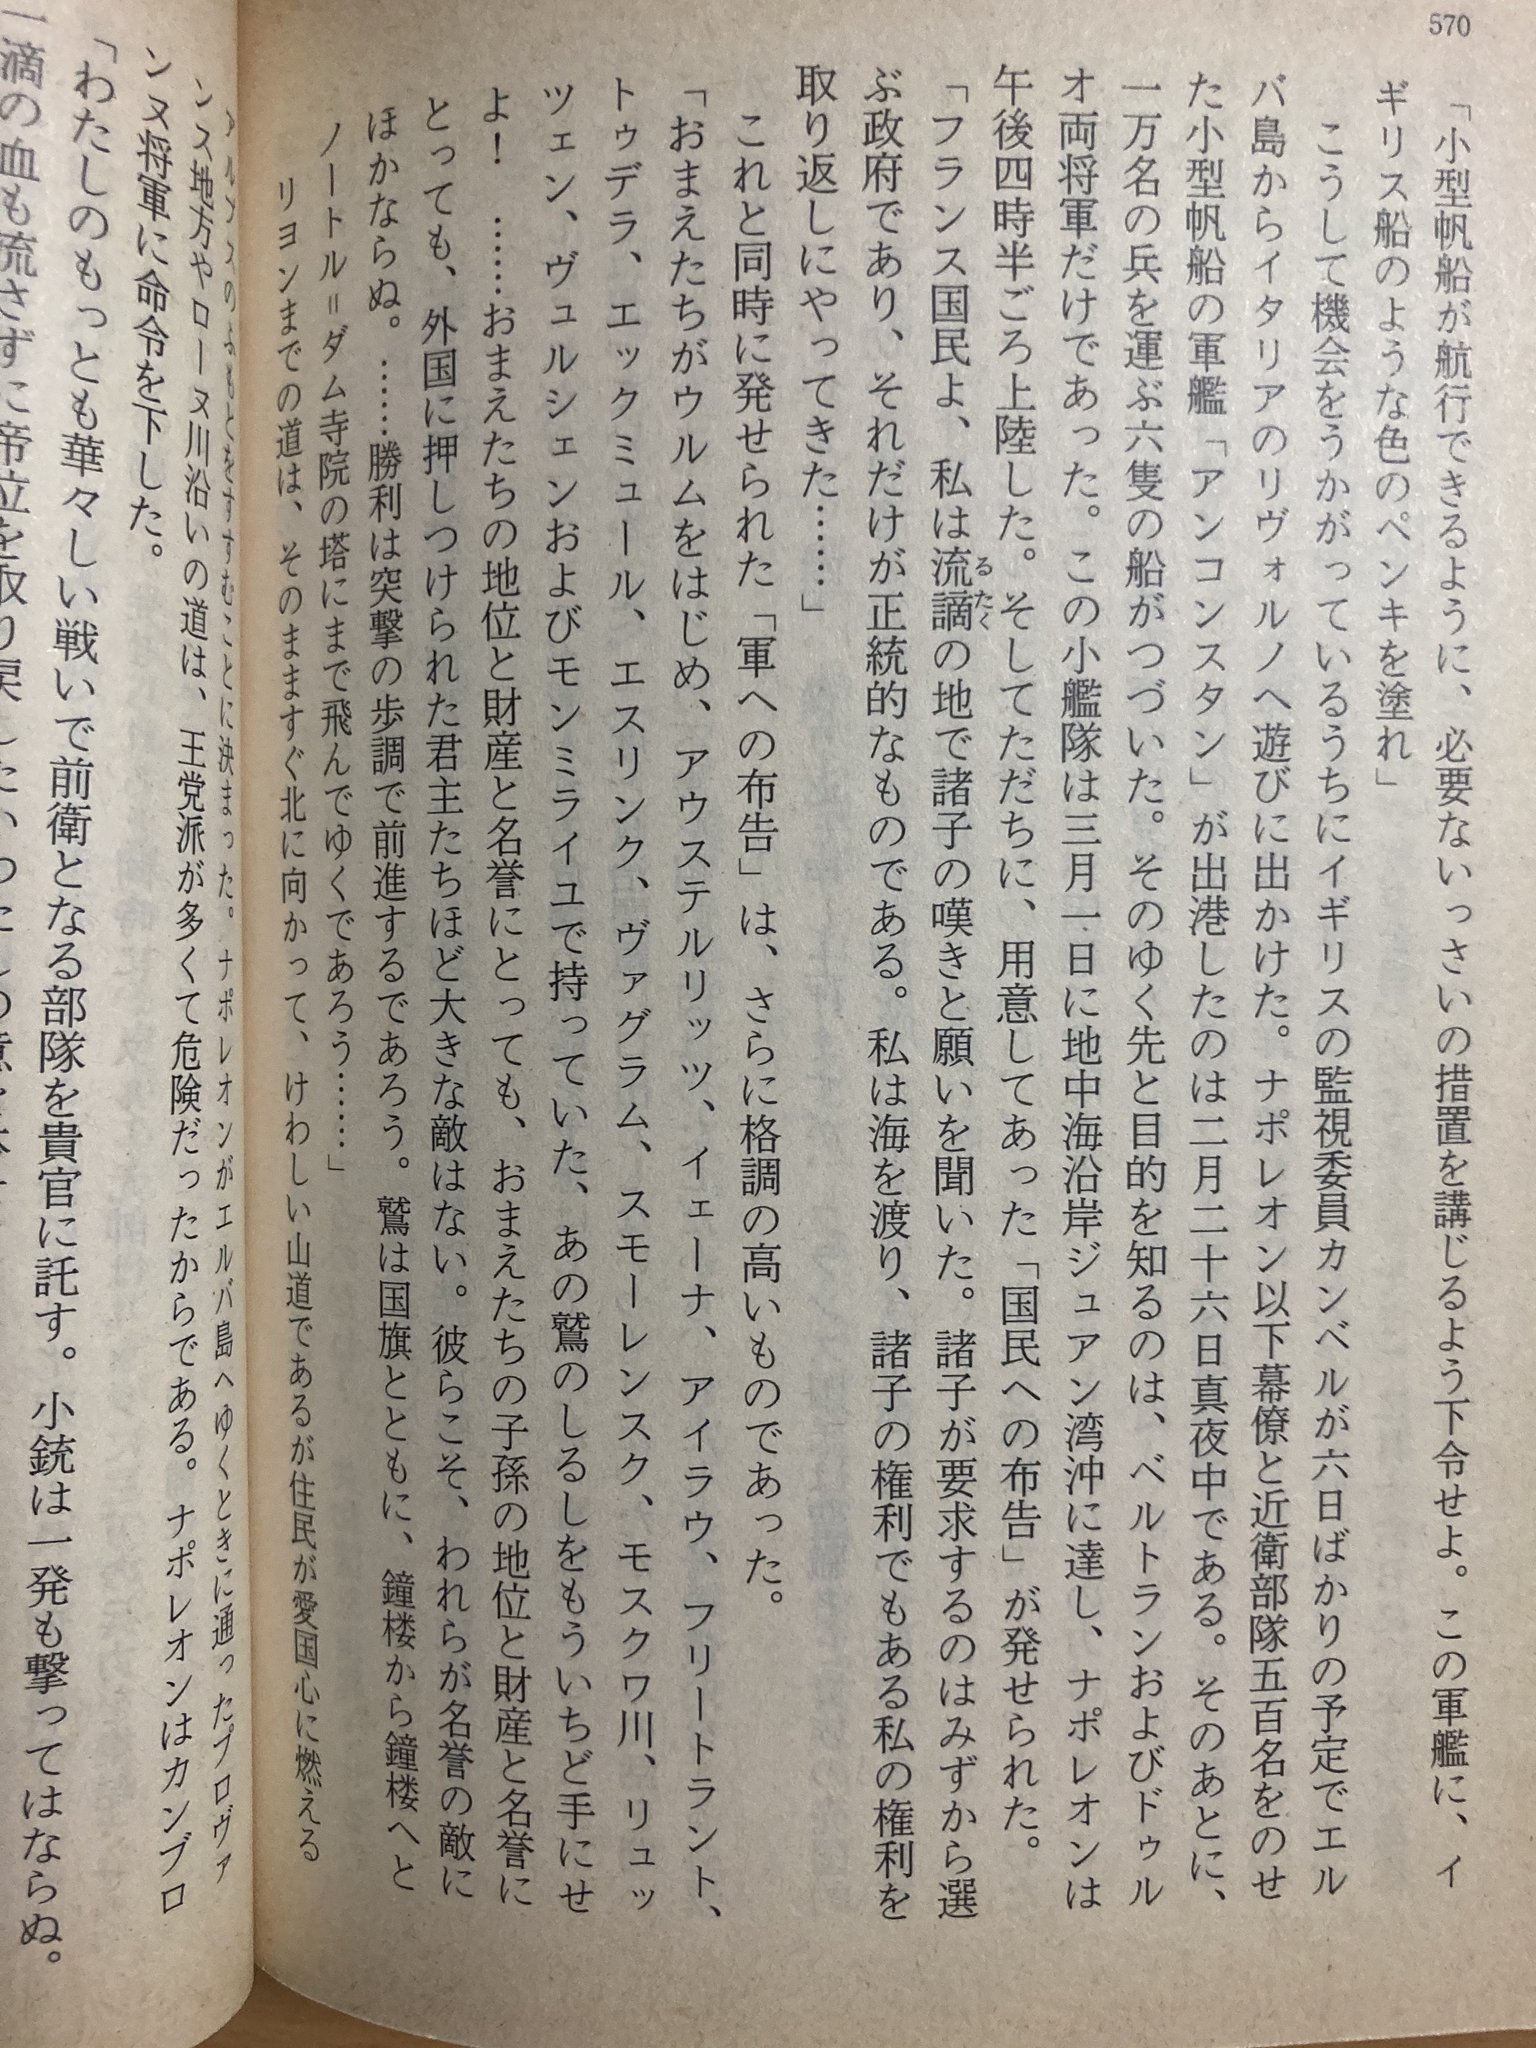 570
「小型帆船が航行できるように、必要ないっさいの措置を講じるよう下令せよ。この軍艦に、イ
ギリス船のような色のペンキを塗れ」
こうして機会をうかがっているうちにイギリスの監視委員カンベルが六日ばかりの予定でエル
バ島からイタリアのリヴォルノへ遊びに出かけた。ナポレオン以下幕僚と近衛部隊五百名をのせ
た小型帆船の軍艦「アンコンスタン」が出港したのは二月二十六日真夜中である。そのあとに、
一万名の兵を運ぶ六隻の船がつづいた。そのゆく先と目的を知るのは、ベルトランおよびドゥル
オ両将軍だけであった。この小艦隊は三月一日に地中海沿岸ジュアン湾沖に達し、ナポレオンは
午後四時半ごろ上陸した。そしてただちに、用意してあった「国民への布告」が発せられた。
「フランス国民よ、私は流謫るたくの地で諸子の嘆きと願いを聞いた。諸子が要求するのはみずから選
ぶ政府であり、それだけが正統的なものである。私は海を渡り、諸子の権利でもある私の権利を
取り返しにやってきた……」
これと同時に発せられた「軍への布告」は、さらに格調の高いものであった。
「おまえたちがウルムをはじめ、アウステルリッツ、イェーナ、アイラウ、フリートラント、
トゥデラ、エックミュール、エスリンク、ヴァグラム、スモーレンスク、モスクワ川、リュッ
ツェン、ヴュルシェンおよびモンミライユで持っていた、あの鷲のしるしをもういちど手にせ
よ！　……おまえたちの地位と財産と名誉にとっても、おまえたちの子孫の地位と財産と名誉に
とっても、外国に押しつけられた君主たちほど大きな敵はない。彼らこそ、われらが名誉の敵に
ほかならぬ。……勝利は突撃の歩調で前進するであろう。鷲は国旗とともに、鐘楼から鐘楼へと
ノートル＝ダム寺院の塔にまで飛んでゆくであろう……」
リヨンまでの道は、そのまますぐ北に向かって、けわしい山道であるが住民が愛国心に燃える
アルプスのふもとをすすむことに決まった。ナポレオンがエルバ島へゆくときに通ったプロヴァ
ンス地方やローヌ川沿いの道は、王党派が多くて危険だったからである。ナポレオンはカンブロ
ンヌ将軍に命令を下した。
「わたしのもっとも華々しい戦いで前衛となる部隊を貴官に託す。小銃は一発も撃ってはならぬ。
一滴の血も流さずに帝位を取り戻したい